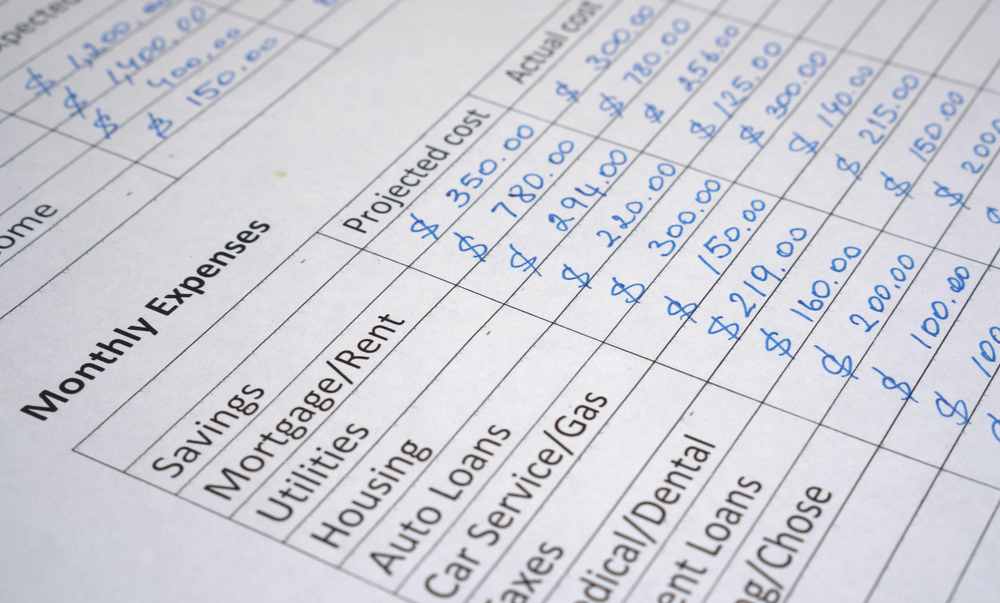 pected
$ 1,200.00
$ 1,400.00
$ 400.00
$ 150.00
ome
Monthly Expenses
Projected cost Actual cost
Savings $ 350.00 $ 300.00
Mortgage/Rent $ 780.00 $ 780.00
Utilities $ 294.00 $ 256.00
Housing $ 220.00 $ 125.00
Auto Loans $ 300.00 $ 300.00
Car Service/Gas $ 150.00 $ 140.00
axes $ 219.00 $ 215.00
dical/Dental $ 160.00 $ 150.00
ent Loans $ 200.00 $ 200
ng/Chose $ 100.00
$ 100